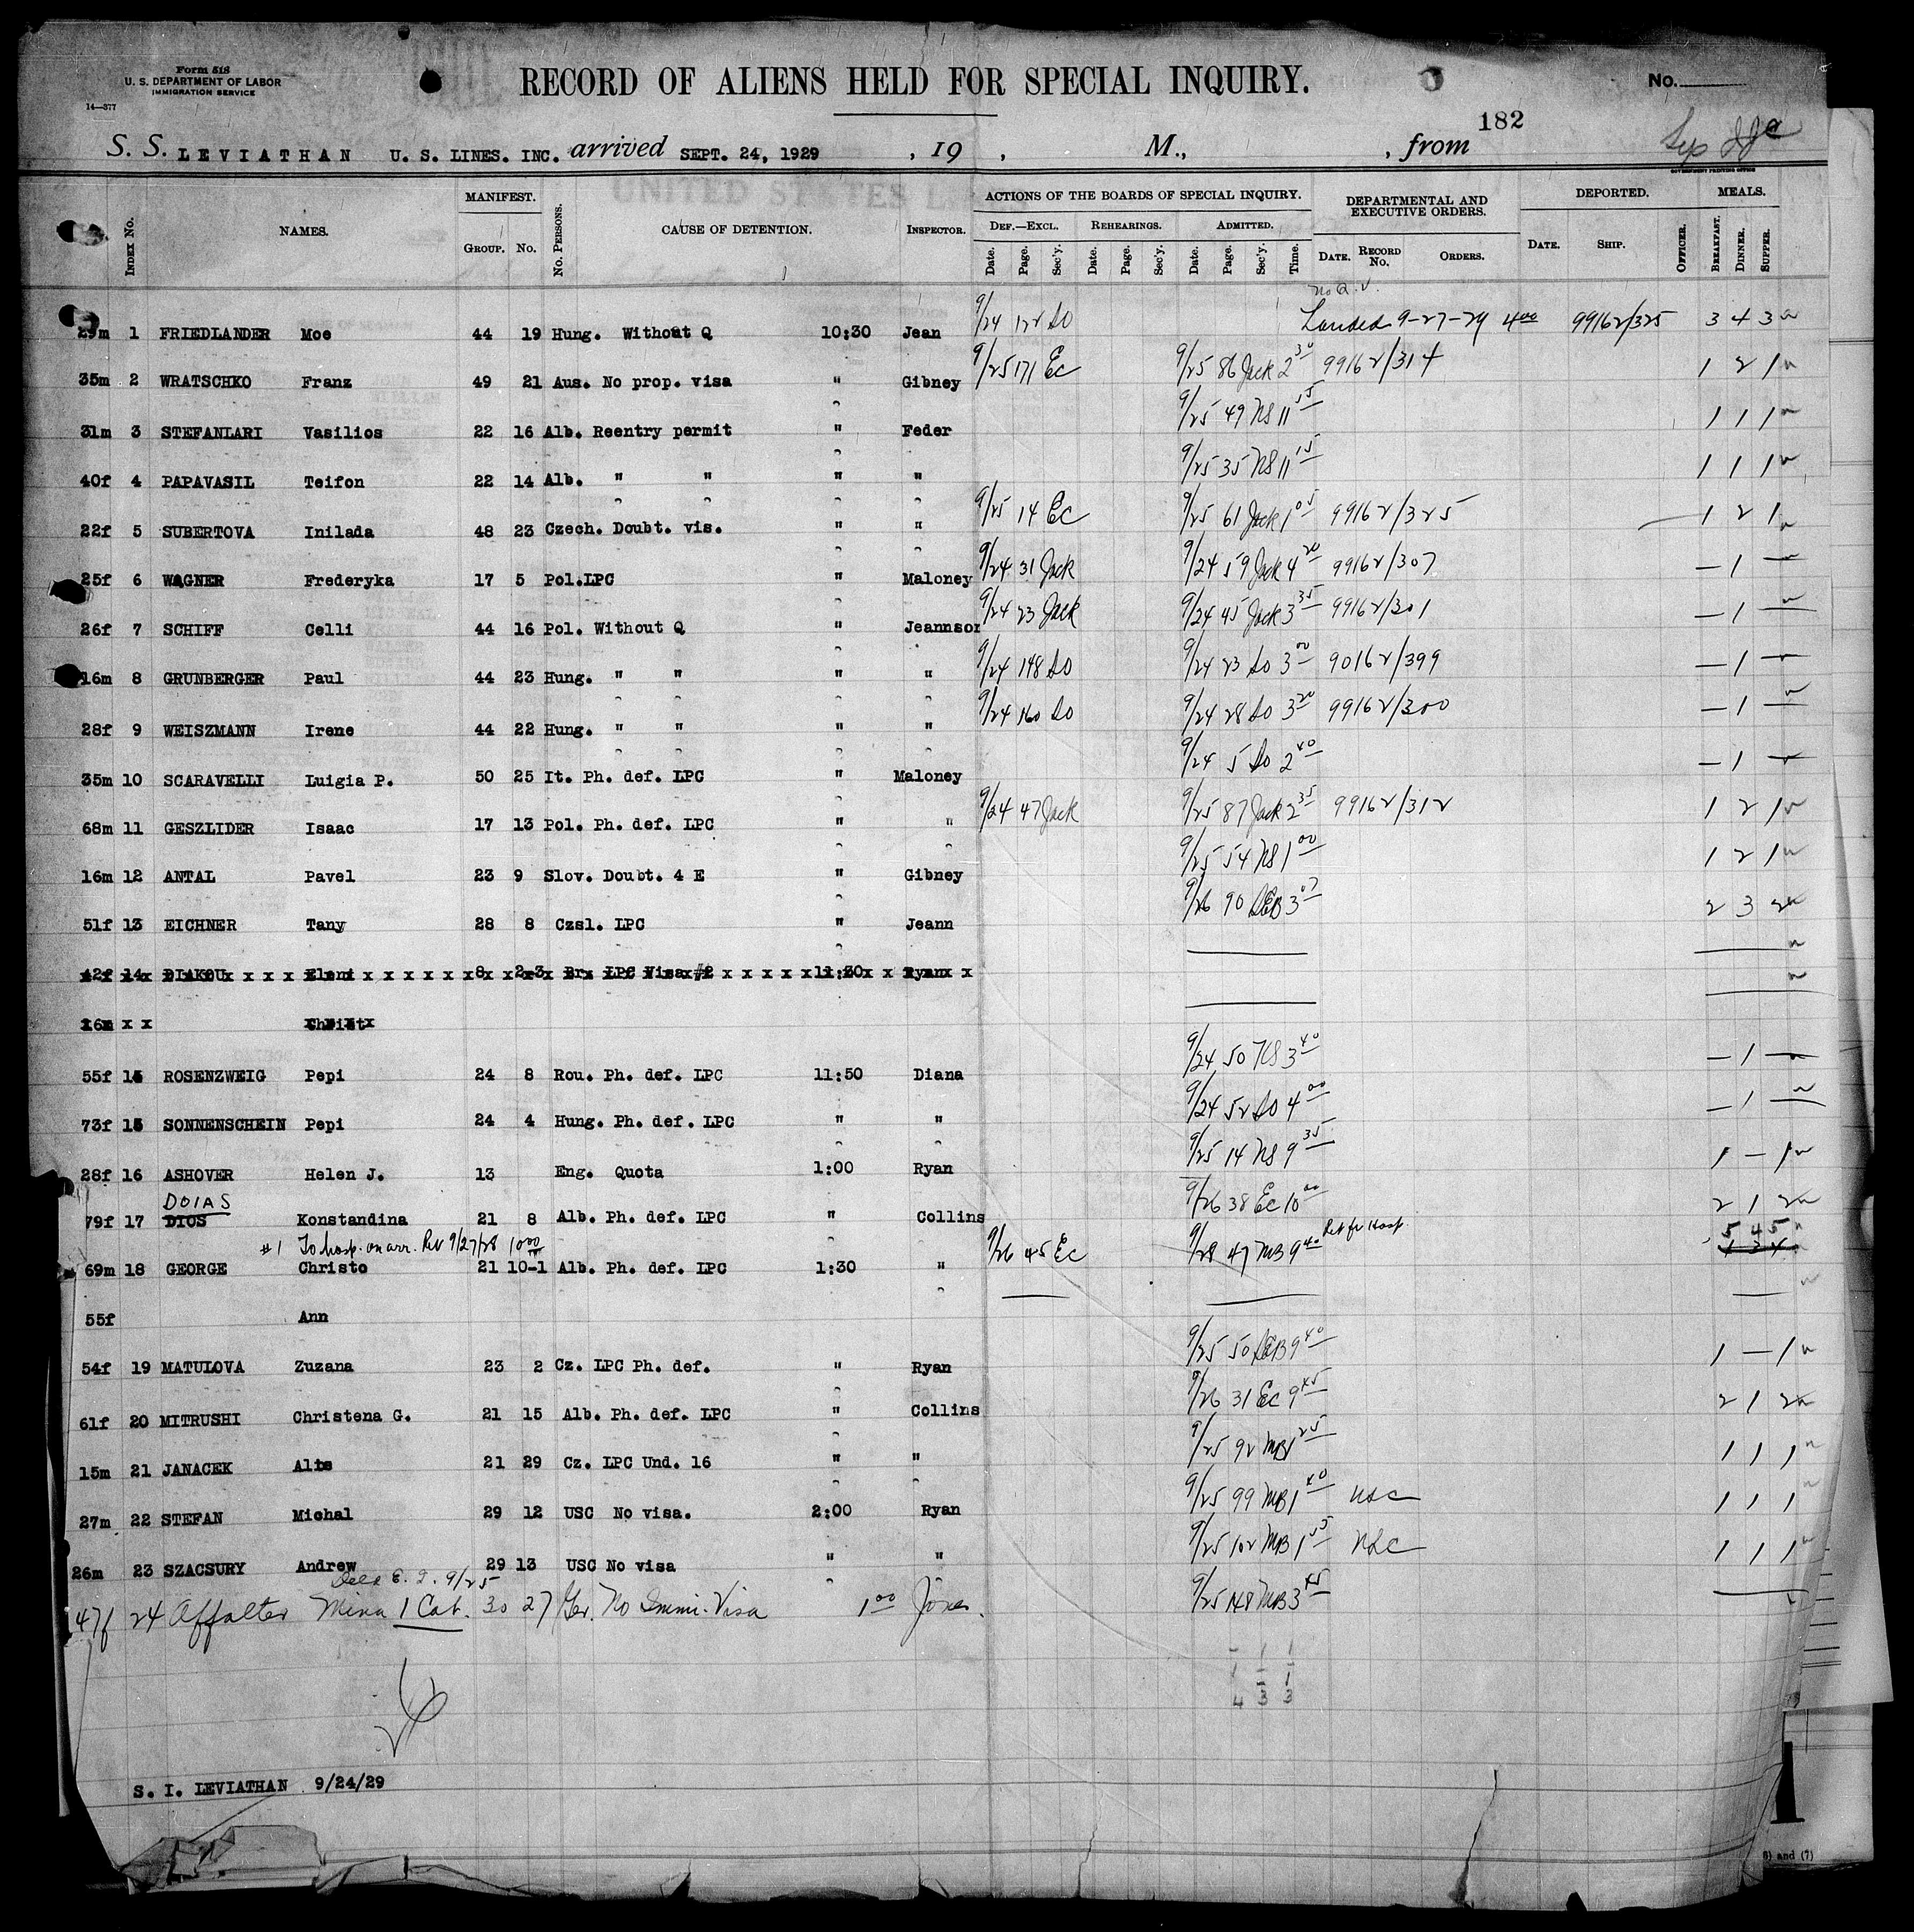 Form 518
U. S. DEPARTMENT OF LABOR
IMMIGRATION SERVICE
14—377
RECORD OF ALIENS HELD FOR SPECIAL INQUIRY.
No.
182
S. S. LEVIATHAN U. S. LINES. INC. arrived SEPT. 24, 1929 , 19 , M., , from
GOVERNMENT PRINTING OFFICE
UNITED STATES
MANIFEST. ACTIONS OF THE BOARDS OF SPECIAL INQUIRY. DEPARTMENTAL AND EXECUTIVE ORDERS. DEPORTED. MEALS.
Index No. NAMES. Group. No. No. Persons. CAUSE OF DETENTION. Inspector. Def.—Excl. Rehearings. Admitted.
Date. Page. Sec'y. Date. Page. Sec'y. Date. Page. Sec'y. Time. Date. Record No. Orders. Date. Ship. Officer. Breakfast. Dinner. Supper.
no Q. V.
29m 1 FRIEDLANDER Moe 44 19 Hung. Without Q 10:30 Jean 9/24 122 So Landed 9-27-29 4 00 99162/325 3 4 3
35m 2 WRATSCHKO Franz 49 21 Aus. No prop. visa " Gibney 9/25 171 Ec 9/25 86 Jack 2 30 99162/314 1 2 1
31m 3 STEFANLARI Vasilios 22 16 Alb. Reentry permit " Feder 9/25 49 NS 11 55 1 1 1
40f 4 PAPAVASIL Teifon 22 14 Alb. " " " " 9/25 35 NS 11 15 1 1 1
22f 5 SUBERTOVA Inilada 48 23 Czech. Doubt. vis. " " 9/25 14 Ec 9/25 61 Jack 1 05 99162/325 1 2 1
25f 6 WAGNER Frederyka 17 5 Pol.LPC " Maloney 9/24 31 Jack 9/24 59 Jack 4 20 99162/307 — 1 —
26f 7 SCHIFF Celli 44 16 Pol. Without Q " Jeannson 9/24 23 Jack 9/24 45 Jack 3 35 99162/301 — 1 —
16m 8 GRUNBERGER Paul 44 23 Hung. " " " " 9/24 148 So 9/24 23 So 3 00 90162/399 — 1 —
28f 9 WEISZMANN Irene 44 22 Hung. " " " " 9/24 160 So 9/24 28 So 3 20 99162/300 — 1 —
35m 10 SCARAVELLI Luigia P. 50 25 It. Ph. def. LPC " Maloney 9/24 5 So 2 40 — 1 —
68m 11 GESZLIDER Isaac 17 13 Pol. Ph. def. LPC " " 9/24 47 Jack 9/25 87 Jack 2 35 99162/312 1 2 1
16m 12 ANTAL Pavel 23 9 Slov. Doubt. 4 E " Gibney 9/25 54 NS 1 00 1 2 1
51f 13 EICHNER Tany 28 8 Czsl. LPC " Jeann 9/26 90 DEB 3 07 2 3 2
42f 14 DIAKOU Eleni 8 2-3 Br. LPC Visa #2 11:30 Ryan
16m Christ
55f 15 ROSENZWEIG Pepi 24 8 Rou. Ph. def. LPC 11:50 Diana 9/24 50 NS 3 40 — 1 —
73f 15 SONNENSCHEIN Pepi 24 4 Hung. Ph. def. LPC " " 9/24 52 So 4 00 — 1 —
28f 16 ASHOVER Helen J. 13 Eng. Quota 1:00 Ryan 9/25 14 NS 9 35 1 — 1
DOIAS
79f 17 DIOS Konstandina 21 8 Alb. Ph. def. LPC " Collins 9/26 38 Ec 10 00 2 1 2
#1 To hosp. on arr. Ret 9/27/28 10 00 Ret fr Hosp. 5 4 5
69m 18 GEORGE Christo 21 10-1 Alb. Ph. def. LPC 1:30 " 9/26 45 Ec 9/28 47 MB 9 40
55f Ann
54f 19 MATULOVA Zuzana 23 2 Cz. LPC Ph. def. " Ryan 9/25 50 DEB 9 40 1 — 1
61f 20 MITRUSHI Christena G. 21 15 Alb. Ph. def. LPC " Collins 9/26 31 Ec 9 45 2 1 2
15m 21 JANACEK Alis 21 29 Cz. LPC Und. 16 " " 9/25 92 MB 1 25 1 1 1
27m 22 STEFAN Michal 29 12 USC No visa. 2:00 Ryan 9/25 99 MB 1 40 USC 1 1 1
26m 23 SZACSURY Andrew 29 13 USC No visa " " 9/25 102 MB 1 55 USC 1 1 1
Deld E. I. 9/25
47f 24 Affalter Mina 1 Cab. 30 27 Ger. No Immi. Visa 1 00 Jones. 9/25 148 MB 3 45
- 1 1
1 - 1
4 3 3
S. I. LEVIATHAN 9/24/29
1
6) and (7)